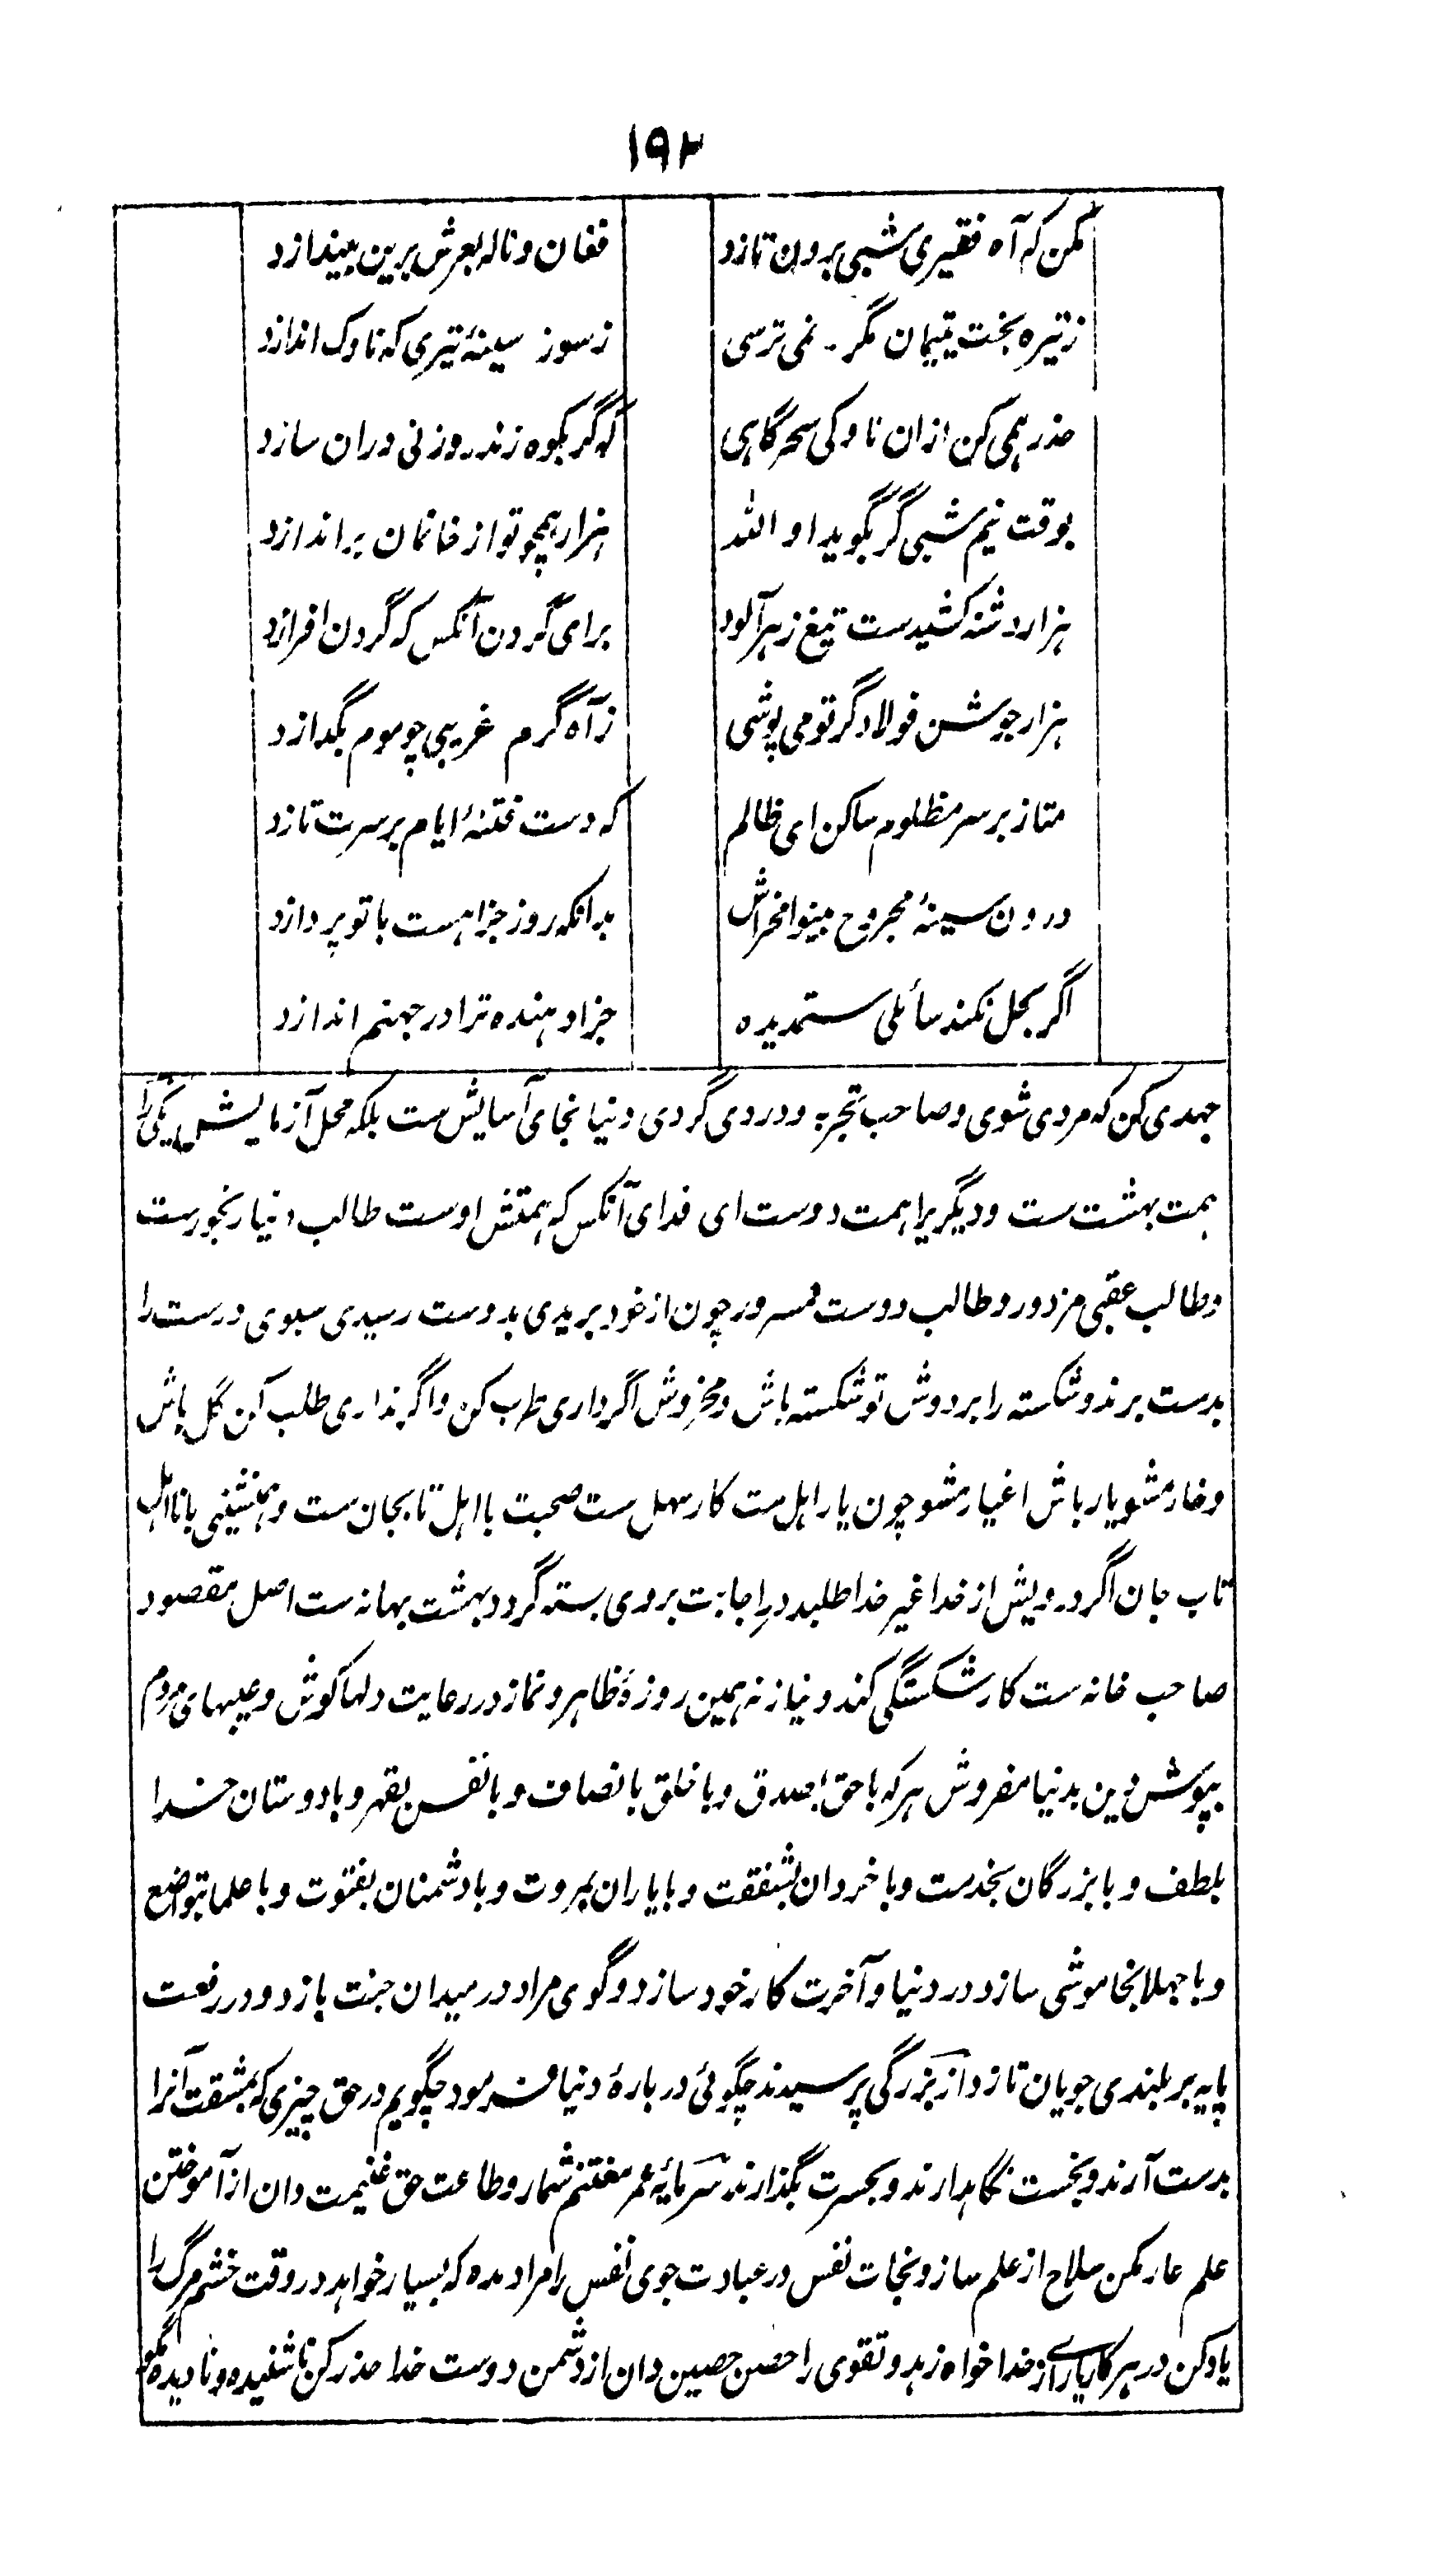 ۱۹۲
مکن که آه فقیری شبی برون تازد
فغان و ناله بعرش برین بیندازد
ز تیره بخت یتیمان مگر نمی ترسی
ز سوز سینۀ تیری که ناوک اندازد
حذر همی کن ازان ناوکی سحرگاهی
که گر بکوه زند روزنی دران سازد
بوقت نیم شبی گر بگوید او الله
هزار همچو تو از خانمان براندازد
هزار دشنه کشیدست تیغ زهرآلود
برای گردن آنکس که گردن افرازد
هزار جوشن فولاد گر تو می پوشی
ز آه گرم غریبی چو موم بگدازد
متاز بر سر مظلوم ساکن ای ظالم
که دست فتنۀ ایام بر سرت تازد
درون سینۀ مجروح بینوا مخراش
بدانکه روز جزا هست با تو پردازد
اگر بحل نکند سائلی ستمدیده
جزا دهنده ترا در جهنم اندازد
جهدی کن که مردی شوی و صاحب تجربه و دردی گردی دنیا نجای آسایش ست بلکه محل آزمایش یکی را
همت بهشت ست و دیگریرا همت دوست ای فدای آنکس که همتش اوست طالب دنیا رنجورست
و طالب عقبی مزدور و طالب دوست مسرور چون از خود بریدی بدوست رسیدی سبوی درست را
بدست برند و شکسته را بر دوش تو شکسته باش و مخروش اگر داری طرب کن و اگر نداری طلب کن گل باش
و خار مشو یار باش اغیار مشو چون یار اهل ست کار سهل ست صحبت با اهل تا بجان ست و همنشینی با نااهل
تاب جان اگر درویش از خدا غیر خدا طلبد در اجابت بروی بسته گردد بهشت بهانه ست اصل مقصود
صاحب خانه ست کار شکستگی کند و نیاز نه همین روزۀ ظاهر و نماز در رعایت دلها کوش و عیبهای مردم
بپوش دین بدنیا مفروش هر که با حق بصدق و با خلق بانصاف و با نفس بقهر و با دوستان خدا
بلطف و با بزرگان بخدمت و با خردان بشفقت و با یاران بمروت و با دشمنان بفتوت و با علما بتواضع
و با جهلا بخاموشی سازد در دنیا و آخرت کار خود سازد و گوی مراد در میدان جنت بازد و در رفعت
پایه بر بلندی جویان تازد از بزرگی پرسیدند چگوئی دربارۀ دنیا فرمود چگویم در حق چیزی که بمشقت آنرا
بدست آرند و بخست نگاهدارند و بحسرت بگذارند سرمایۀ عمر مغتنم شمار و طاعت حق غنیمت دان از آموختن
علم عار مکن سلاح از علم ساز و نجات نفس در عبادت جوی نفس را مراد مده که بسیار خواهد در وقت خشم مرگ را
یاد کن در هر کار یاری از خدا خواه زهد و تقوی را حصن حصین دان از دشمن دوست خدا حذر کن ناشنیده و نادیده مگو